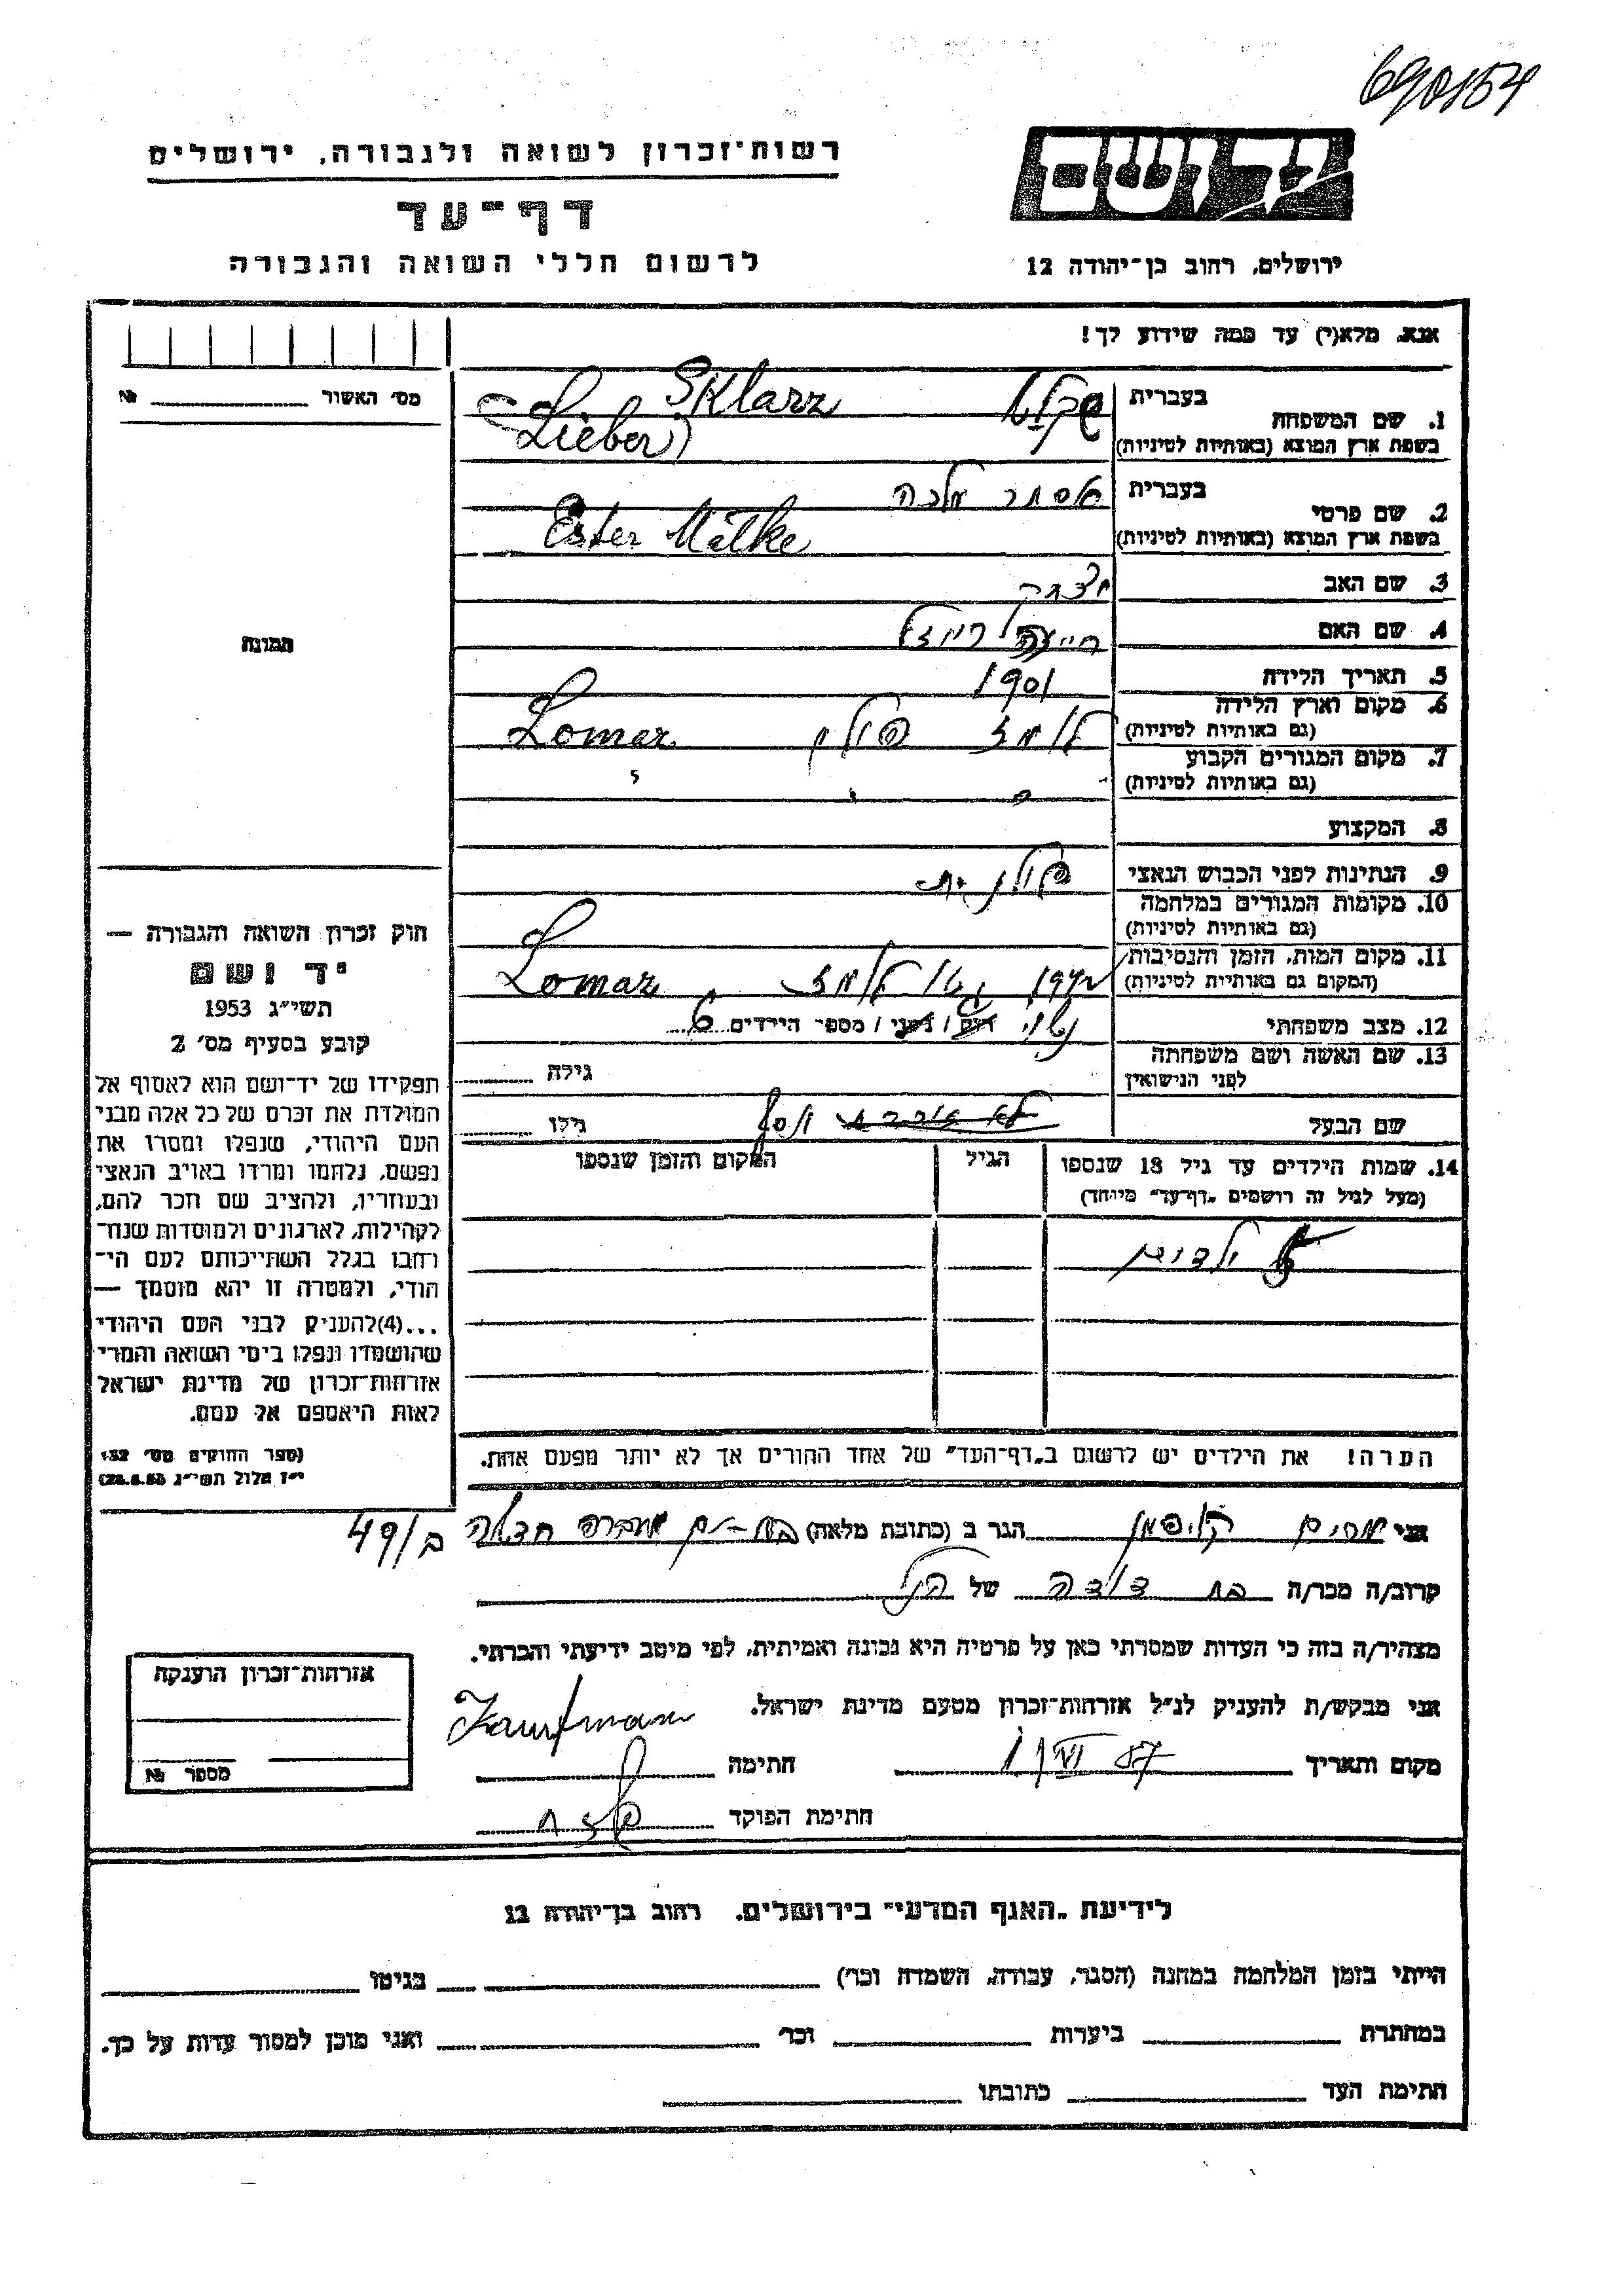 690154
רשות־זכרון לשואה ולגבורה, ירושלים
יד ושם
דף־עד
לרשום חללי השואה והגבורה
ירושלים, רחוב בן־יהודה 12
אנא, מלא(י) עד כמה שידוע לך!
מס׳ האשור №
בעברית
Sklarz
1. שם המשפחה
בשפת ארץ המוצא (באותיות לטיניות) (Lieber)
בעברית אסתר מלכה
2. שם פרטי
בשפת ארץ המוצא (באותיות לטיניות) Ester Malke
3. שם האב יצחק
4. שם האם
תמונה
5. תאריך הלידה 1901
6. מקום וארץ הלידה
(גם באותיות לטיניות) פולין Lomaz
7. מקום המגורים הקבוע
(גם באותיות לטיניות)
8. המקצוע
9. הנתינות לפני הכבוש הנאצי פולנית
10. מקומות המגורים במלחמה
(גם באותיות לטיניות)
11. מקום המות, הזמן והנסיבות
(המקום גם באותיות לטיניות) Lomaz
12. מצב משפחתי / מספר הילדים 6
13. שם האשה ושם משפחתה
לפני הנישואין גילה
שם הבעל יוסף גילו
14. שמות הילדים עד גיל 18 שנספו הגיל המקום והזמן שנספו
(מעל לגיל זה רושמים „דף־עד״ מיוחד)
ילדים
הערה! את הילדים יש לרשום ב„דף־העד״ של אחד ההורים אך לא יותר מפעם אחת.
חוק זכרון השואה והגבורה —
יד ושם
תשי״ג 1953
קובע בסעיף מס׳ 2
תפקידו של יד־ושם הוא לאסוף אל
המולדת את זכרם של כל אלה מבני
העם היהודי, שנפלו ומסרו את
נפשם, נלחמו ומרדו באויב הנאצי
ובעוזריו, ולהציב שם וזכר להם,
לקהילות, לארגונים ולמוסדות שנח־
רחבו בגלל השתייכותם לעם הי־
הודי, ולמטרה זו יהא מוסמך —
...(4)להעניק לבני העם היהודי
שהושמדו ונפלו בימי השואה והמרי
אזרחות־זכרון של מדינת ישראל
לאות היאספם אל עמם.
(ספר החוקים מס׳ 132
י״ז אלול תשי״ג (28.8.53)
אני מרים קויפמן הגר ב (כתובת מלאה) בת־ים 49/ב
קרוב/ה מכר/ה בת דודה של הנ״ל
מצהיר/ה בזה כי העדות שמסרתי כאן על פרטיה היא נכונה ואמיתית, לפי מיטב ידיעתי והכרתי.
אני מבקש/ת להעניק לנ״ל אזרחות־זכרון מטעם מדינת ישראל.
Kaufman
מקום ותאריך חתימה
חתימת הפוקד
אזרחות־זכרון הוענקה
מספר №
לידיעת „האגף המדעי״ בירושלים, רחוב בן־יהודה 12
הייתי בזמן המלחמה במחנה (הסגר, עבודה, השמדה וכו׳) בגיטו
במחתרת ביערות וכו׳ ואני מוכן למסור עדות על כך.
חתימת העד כתובתו